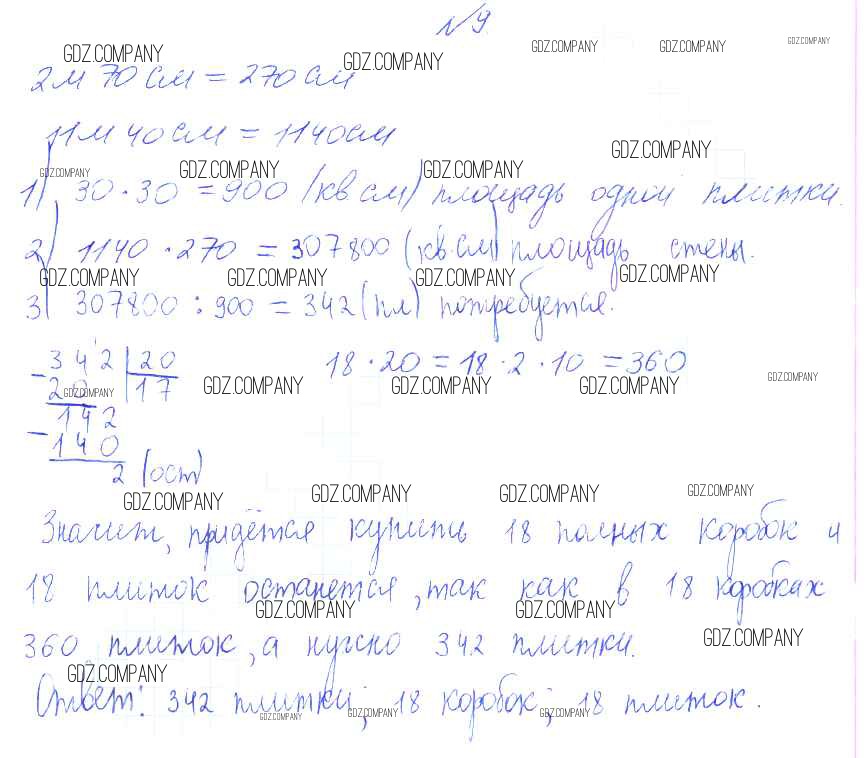 №9
GDZ.COMPANY GDZ.COMPANY GDZ.COMPANY GDZ.COMPANY GDZ.COMPANY
2м 70см = 270см
11м 40см = 1140см
GDZ.COMPANY GDZ.COMPANY GDZ.COMPANY GDZ.COMPANY
1) 30 · 30 = 900 (кв см) площадь одной плитки.
2) 1140 · 270 = 307800 (кв.см) площадь стены.
GDZ.COMPANY GDZ.COMPANY GDZ.COMPANY GDZ.COMPANY
3) 307800 : 900 = 342 (пл) потребуется.
- 342 | 20 18 · 20 = 18 · 2 · 10 = 360
20 | 17
GDZ.COMPANY GDZ.COMPANY GDZ.COMPANY GDZ.COMPANY GDZ.COMPANY
142
- 140
2 (ост)
GDZ.COMPANY GDZ.COMPANY GDZ.COMPANY GDZ.COMPANY
Значит, придётся купить 18 полных коробок и
18 плиток останется, так как в 18 коробках
GDZ.COMPANY GDZ.COMPANY GDZ.COMPANY
360 плиток, а нужно 342 плитки.
GDZ.COMPANY
Ответ: 342 плитки; 18 коробок; 18 плиток.
GDZ.COMPANY GDZ.COMPANY GDZ.COMPANY